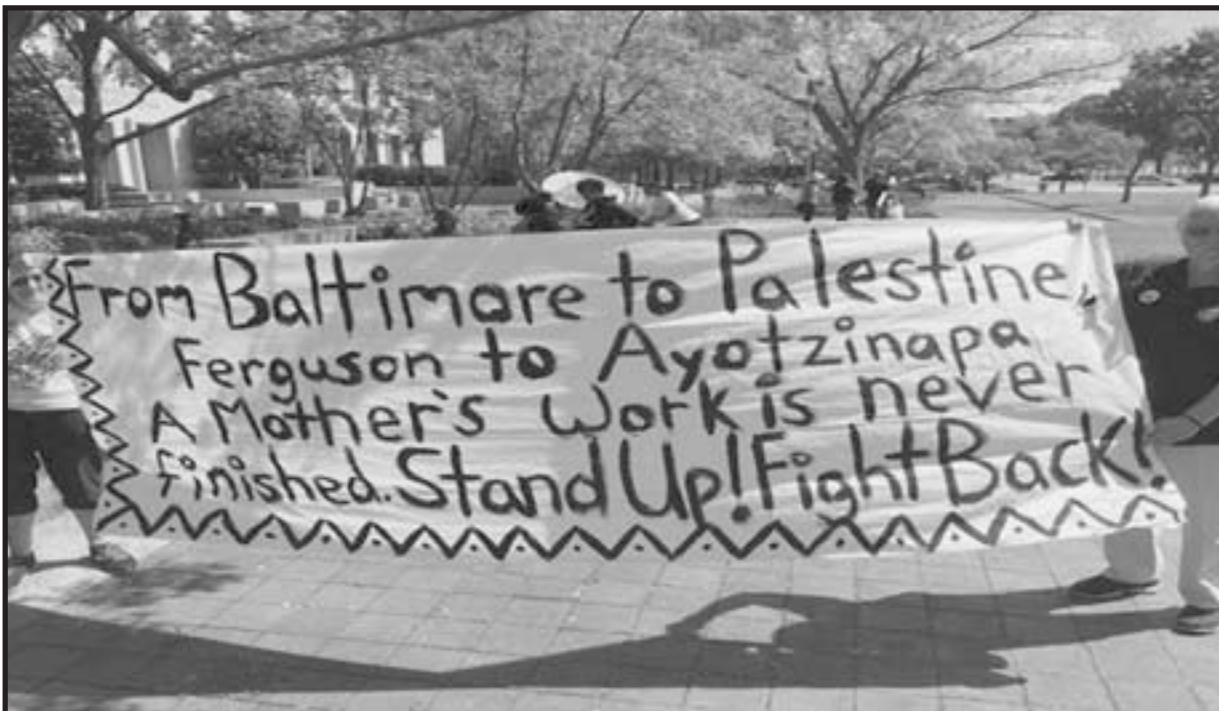 From Baltimore to Palestine,
Ferguson to Ayotzinapa
A Mother's Work is never
finished. Stand Up! Fight Back!